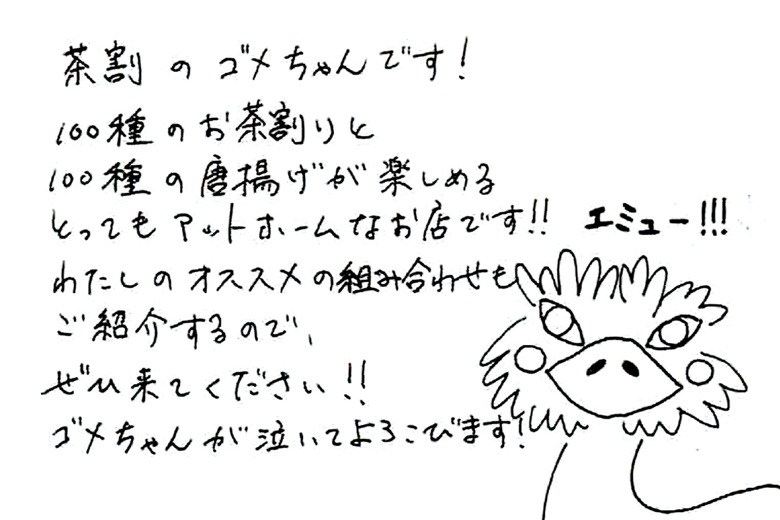 茶割のゴメちゃんです!
100種のお茶割りと
100種の唐揚げが楽しめる
とってもアットホームなお店です!!
エミュー!!!
わたしのオススメの組み合わせも
ご紹介するので、
ぜひ来てください!!
ゴメちゃんが泣いてよろこびます!